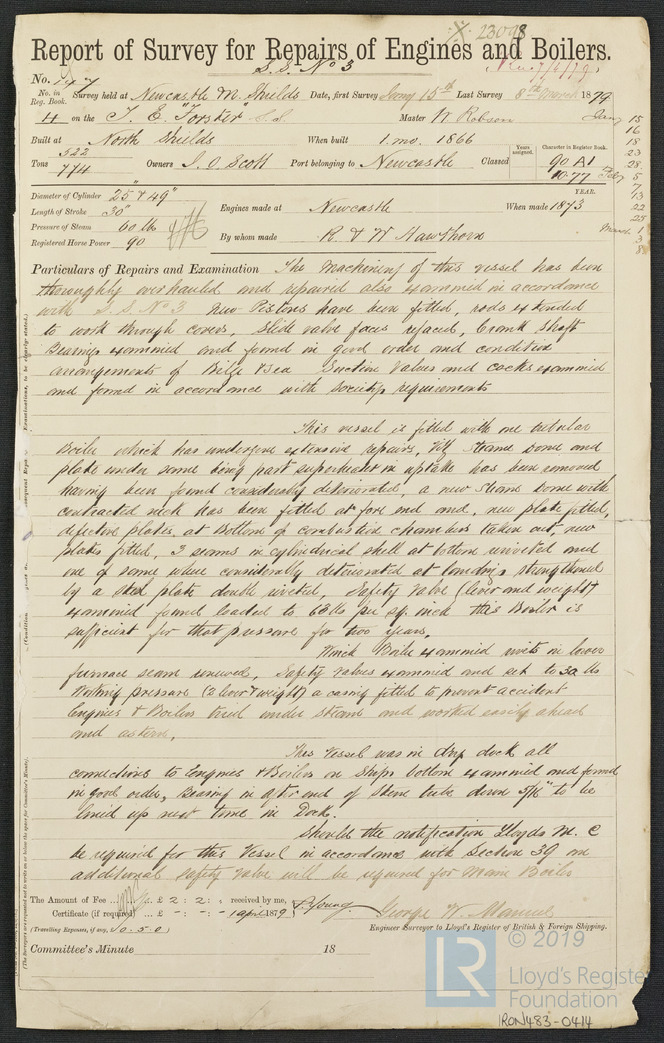 23098
Report of Survey for Repairs of Engines and Boilers.
S.S. No 3
No.
No. in Reg. Book. Survey held at Newcastle N. Shields Date, first Survey Jany 15th Last Survey 8th March 1879
4 on the S.S. Master W Robson
Jany 15
16
18
23
28
Feby 5
7
13
22
25
March 1
3
8
Built at North Shields When built 1. mo. 1866
Tons 522 774 Owners J. O. Scott Port belonging to Newcastle Classed Years assigned. Character in Register Book. 90 A1
10.77
Diameter of Cylinder 25" & 49"
Length of Stroke 30"
Pressure of Steam 60 lbs
Registered Horse Power 90
Engines made at Newcastle YEAR. When made 1873
By whom made R. & W Hawthorn
Particulars of Repairs and Examination The Machinery of this vessel has been
thoroughly overhauled and repaired also examined in accordance
with S.S. No 3 New Pistons have been fitted, rods extended
to work through covers, slide valve faces refaced, Crank shaft
Bearings examined and found in good order and condition
arrangements of Bilge & Sea Suction Valves and cocks examined
and found in accordance with Society's requirements
This vessel is fitted with one tubular
Boiler which has undergone extensive repairs, Viz Steam Dome and
plate under same being part superheater in uptake has been removed
having been found considerably deteriorated, a new Steam Dome with
contracted neck has been fitted at fore end and, new plate fitted,
defective plates, at Bottom of combustion chambers taken out, new
plates fitted, 3 seams in cylindrical shell at bottom riveted and
one of same where considerably deteriorated at landings strengthened
by a steel plate double riveted, Safety Valve (lever and weight)
examined found loaded to lbs per sq. inch this Boiler is
sufficient for that pressure for two years,
Winch Boiler examined rivets in lower
furnace seam renewed, Safety Valves examined and set to 30 lbs
Working pressure (2 lever & weight) a casing fitted to prevent accident
Engines & Boilers tried under steam and worked easily ahead
and astern,
This Vessel was in dry dock all
connections to Engines & Boilers on Ships bottom examined and found
in good order, Bearing in after end of Stern tube down to be
lined up next time in Dock.
Should the notification Lloyds M. C
be required for this Vessel in accordance with Section 39 an
additional Safety Valve will be required for Main Boiler
The Amount of Fee £ 2 : 2 : - received by me,
Certificate (if required) £ - : - : - 1 April 1879
(Travelling Expenses, if any, £0.5.0)
George W. Manuel
Engineer Surveyor to Lloyd's Register of British & Foreign Shipping.
Committee's Minute 18
LR
© 2019
Lloyd's Register
Foundation
IRON483-0414